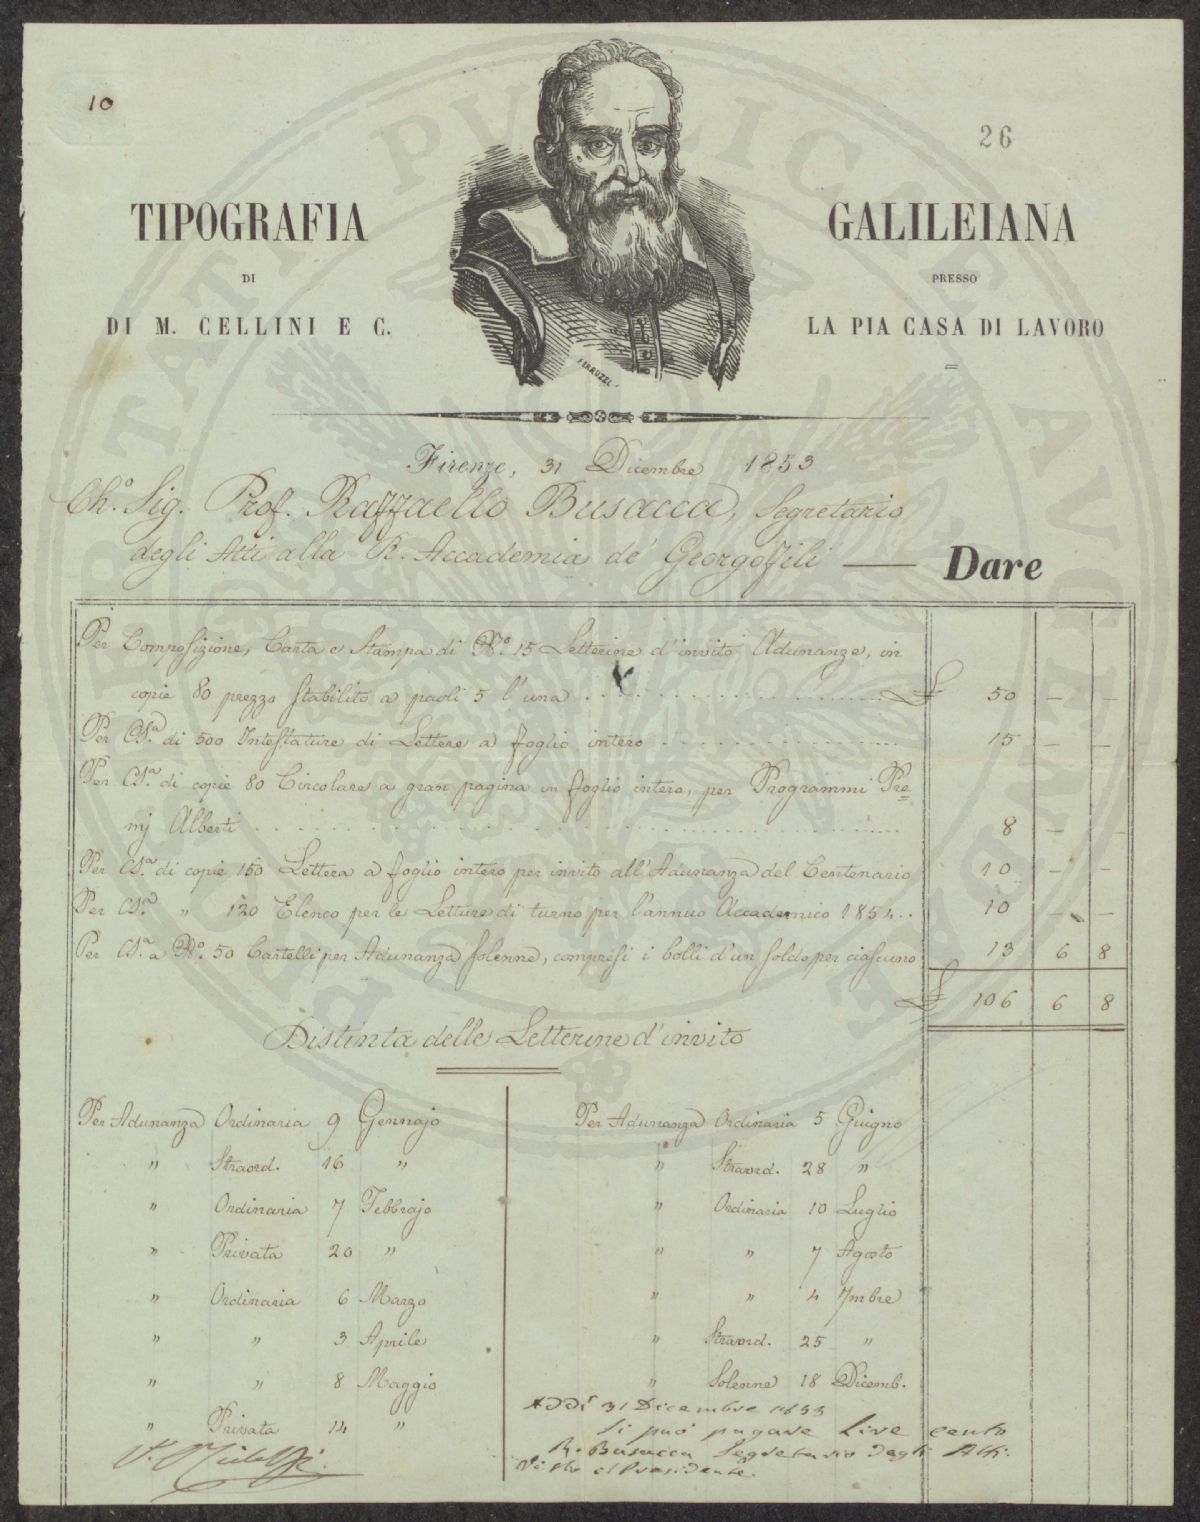 10
26
TIPOGRAFIA
GALILEIANA
DI
PRESSO
DI M. CELLINI E C.
LA PIA CASA DI LAVORO
Firenze, 31 Dicembre 1853
Ch.º Sig. Prof. Raffaello Busacca, Segretario
degli Atti alla R. Accademia de' Georgofili — Dare
Per Composizione, Carta e Stampa di N.º 15 Letterine d'invito Adunanze, in
copie 80 prezzo stabilito a paoli 5 l'una £ 50 — —
Per Cs.ª di 500 Intestature di Lettere a foglio intero 15 — —
Per Cs.ª di copie 80 Circolare a gran pagina in foglio intero, per Programmi Pre=
mj Alberti 8 — —
Per Cs.ª di copie 150 Lettera a foglio intero per invito all'Adunanza del Centenario 10 — —
Per Cs.ª " 120 Elenco per le Letture di turno per l'annuo Accademico 1854.. 10 — —
Per Cs.ª a N.º 50 Cartelli per Adunanza solenne, compresi i bolli d'un soldo per ciascuno 13 6 8
£ 106 6 8
Distinta delle Letterine d'invito
Per Adunanza Ordinaria 9 Gennajo
" Straord. 16 "
" Ordinaria 7 Febbrajo
" Privata 20 "
" Ordinaria 6 Marzo
" " 3 Aprile
" " 8 Maggio
" Privata 14 "
Per Adunanza Ordinaria 5 Giugno
" Straord. 28 "
" Ordinaria 10 Luglio
" " 7 Agosto
" " 4 7mbre
" Straord. 25 "
" Solenne 18 Dicemb.
Addì 31 Dicembre 1853
Si può pagare Lire cento
R. Busacca Segretario degli Atti
il Presidente